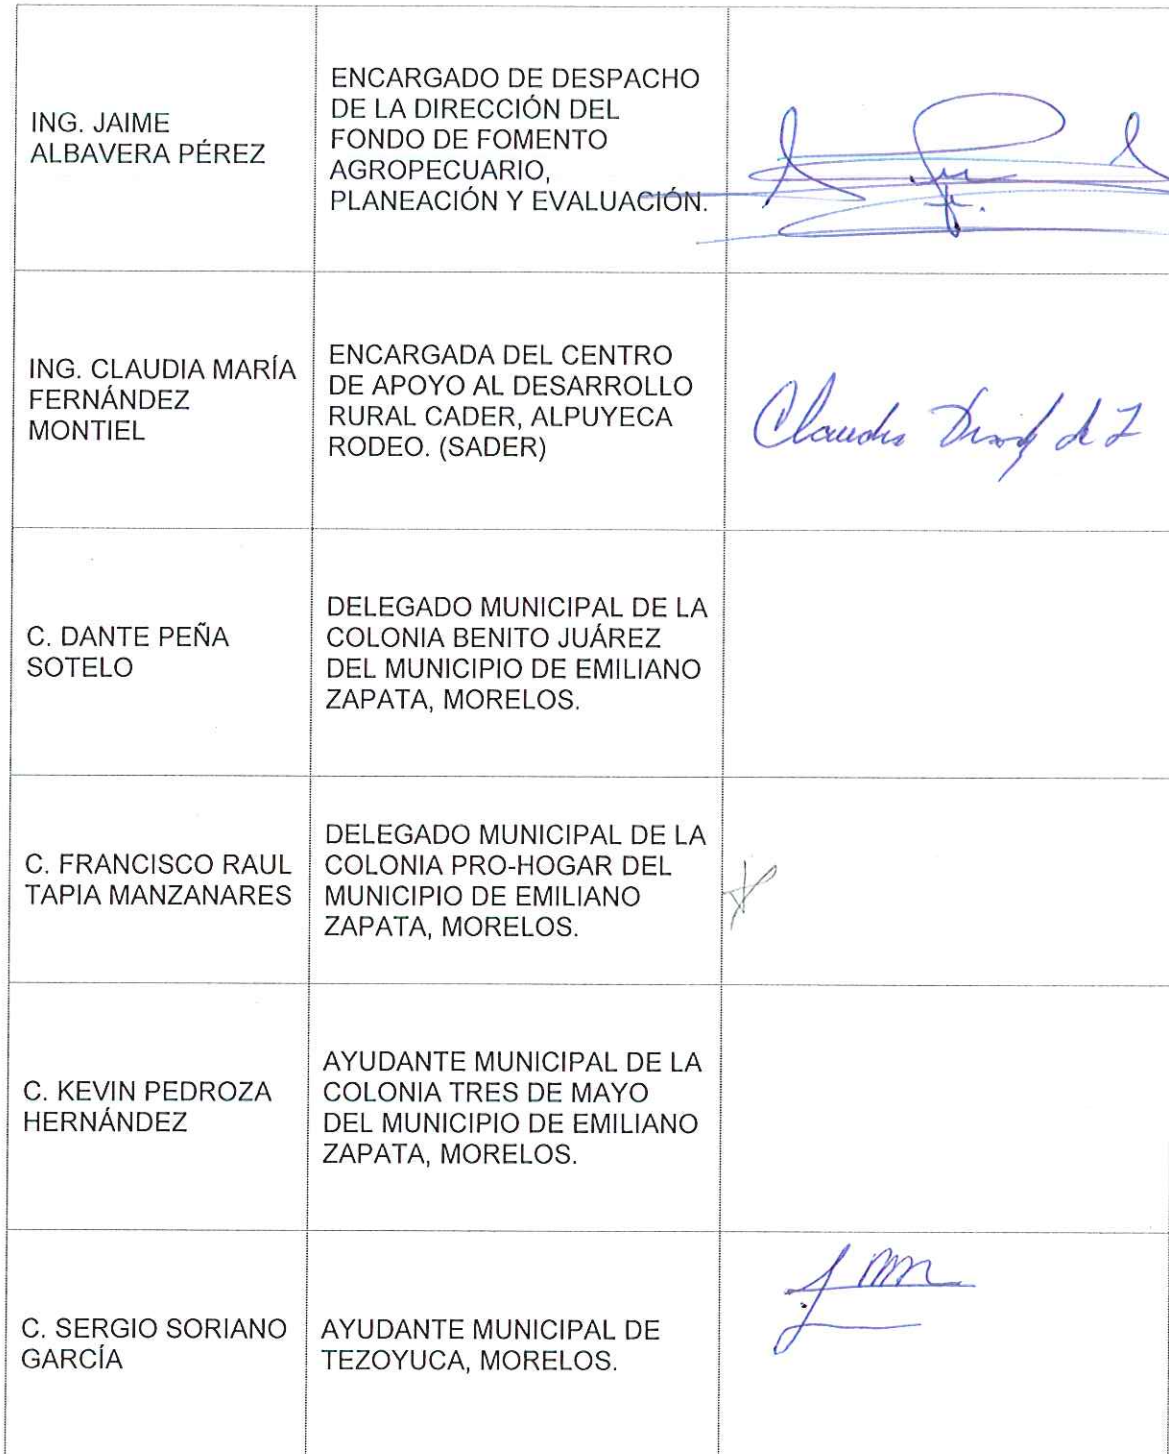 ING. JAIME
ALBAVERA PÉREZ
ENCARGADO DE DESPACHO
DE LA DIRECCIÓN DEL
FONDO DE FOMENTO
AGROPECUARIO,
PLANEACIÓN Y EVALUACIÓN.
ING. CLAUDIA MARÍA
FERNÁNDEZ
MONTIEL
ENCARGADA DEL CENTRO
DE APOYO AL DESARROLLO
RURAL CADER, ALPUYECA
RODEO. (SADER)
Claudia
C. DANTE PEÑA
SOTELO
DELEGADO MUNICIPAL DE LA
COLONIA BENITO JUÁREZ
DEL MUNICIPIO DE EMILIANO
ZAPATA, MORELOS.
C. FRANCISCO RAUL
TAPIA MANZANARES
DELEGADO MUNICIPAL DE LA
COLONIA PRO-HOGAR DEL
MUNICIPIO DE EMILIANO
ZAPATA, MORELOS.
C. KEVIN PEDROZA
HERNÁNDEZ
AYUDANTE MUNICIPAL DE LA
COLONIA TRES DE MAYO
DEL MUNICIPIO DE EMILIANO
ZAPATA, MORELOS.
C. SERGIO SORIANO
GARCÍA
AYUDANTE MUNICIPAL DE
TEZOYUCA, MORELOS.